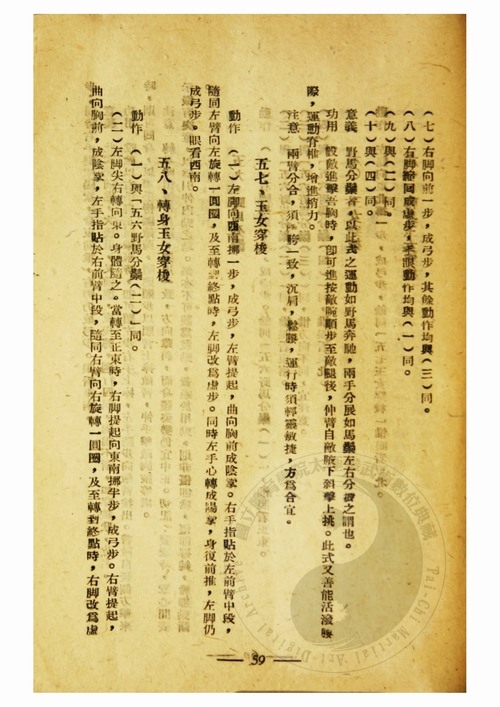 （七）右脚向前一步，成弓步，其餘動作均與（三）同。
（八）右脚縮回成虛步，手眼動作均與（一）同。
（九）與（二）同。
（十）與（四）同。
意義　野馬分鬃者，以此式之運動如野馬奔馳，兩手分展如馬鬃左右分披之謂也。
功用　設敵進擊吾胸時，卽可進按敵腕順步至敵腿後，伸臂自敵腋下斜擊上挑。此式又善能活潑腰
際，運動脊椎，增進梢力。
注意　兩臂分合，須一致，沉肩，鬆腰，運行時須輕靈敏捷，方爲合宜。
五七、玉女穿梭
動作　（一）左脚向西南挪一步，成弓步，左臂提起，曲向胸前成陰掌。右手指貼於左前臂中段，
隨同左臂向左旋轉一圓圈，及至轉到終點時，左脚改爲虛步。同時左手心轉成陽掌，身復前推，左脚仍
成弓步。眼看西南。
五八、轉身玉女穿梭
動作　（一）與「五六野馬分鬃（二）」同。
（二）左脚尖右轉向東。身體隨之。當轉至正東時，右脚提起向東南挪半步，成弓步。右臂提起，
曲向胸前，成陰掌，左手指貼於右前臂中段，隨同右臂向右旋轉一圓圈，及至轉到終點時，右脚改爲虛
59
Tai-Chi Martial Art-Digital Archive